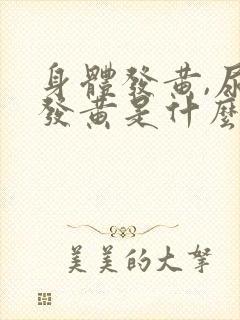 身體發黃,尿
發黃是什麼
美美的大拏